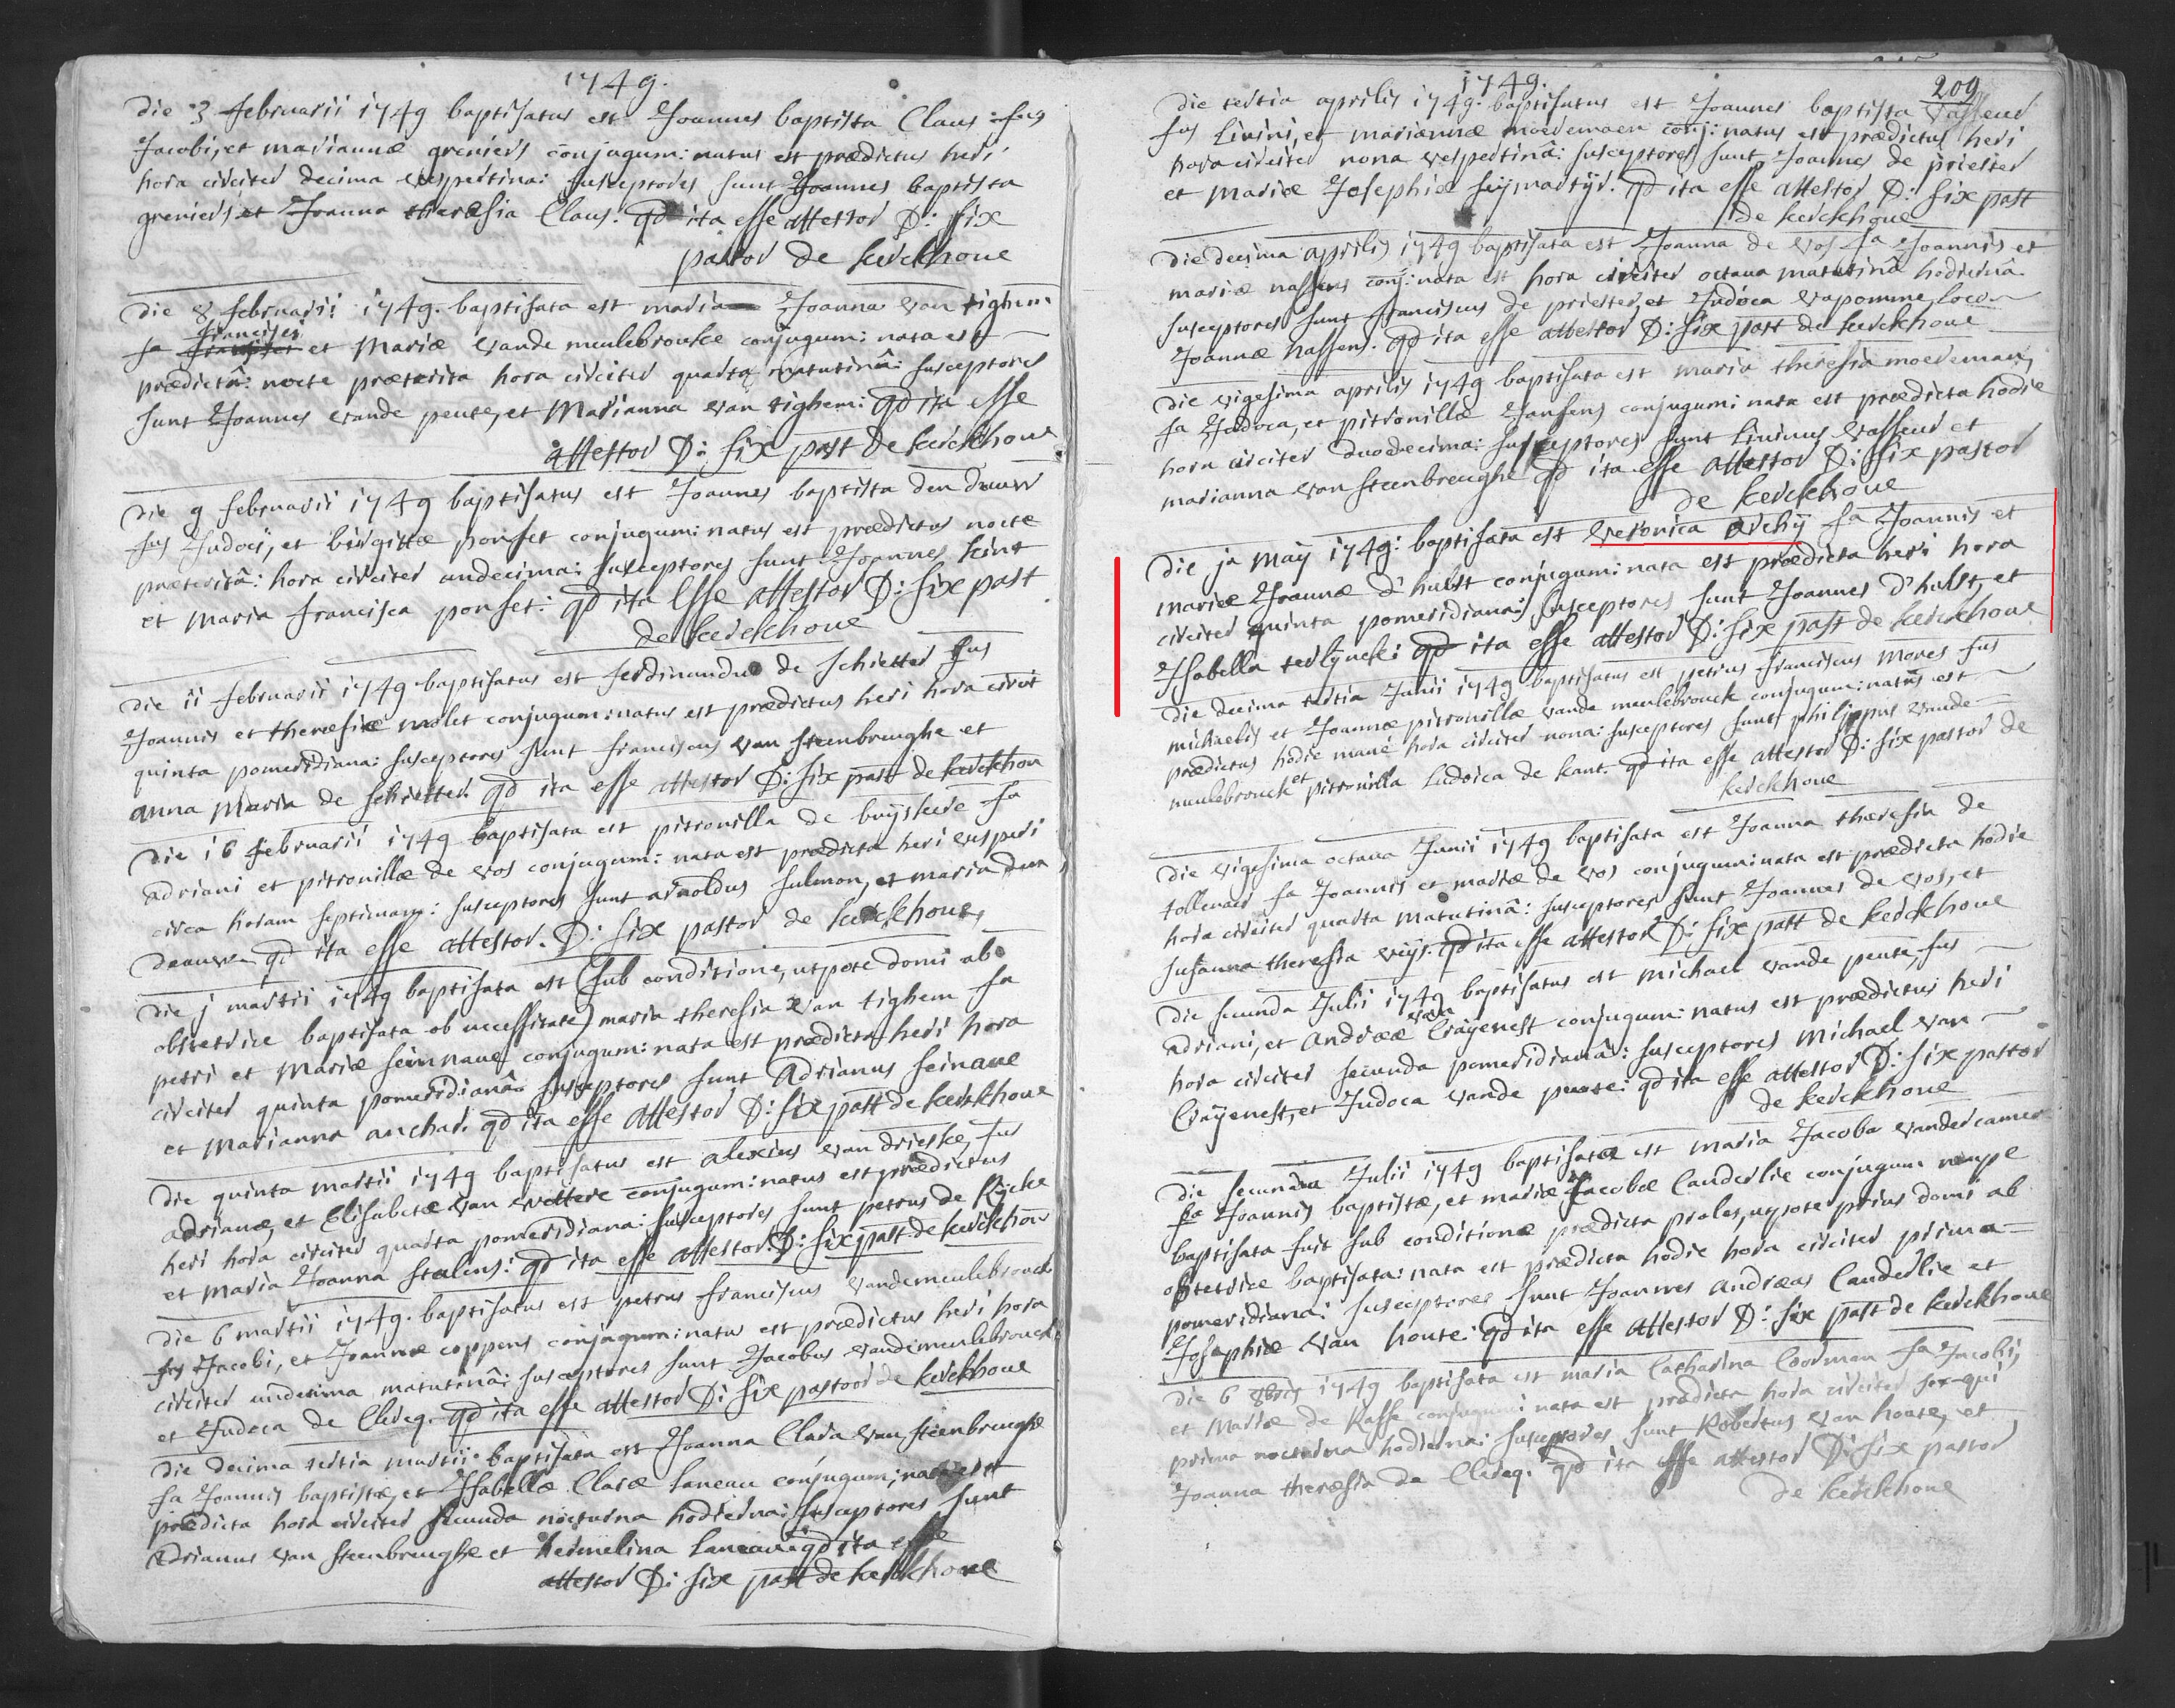 1749.
Die 3 februarii 1749 baptisatus est Joannes baptista Claus: fus
Jacobi, et mariannæ greniers conjugum: natus est prædictus heri
hora circiter decima vespertina: susceptores sunt Joannes baptista
greniers et Joanna theresia Claus: qd ita esse attestor D: Six
pastor de kerckhoue
Die 8 februarii 1749. baptisata est maria Joanna van tighem
francisci
fa et Mariæ vande meulebroucke conjugum: nata est
prædictâ nocte præterita hora circiter quarta matutinâ: susceptores
sunt Joannes vande peute, et Marianna van tighem: qd ita esse
attestor D: Six past de kerckhoue
Die 9 februarii 1749 baptisatus est Joannes baptista den dauw
fus Judoci, et birgittæ ponset conjugum: natus est prædictus nocte
præteritâ: hora circiter undecima: susceptores sunt Joannes kint
et Maria francisca ponset: qd ita esse attestor D: Six past
de kerckhoue
Die 11 februarii 1749 baptisatus est ferdinandus de schietter fus
Joannis et theresiæ malet conjugum: natus est prædictus heri hora circit
quinta pomeridiana: susceptores sunt franciscus van steenbrughe et
anna Maria de schietter. qd ita esse attestor D: Six past de kerckhou
Die 16 februarii 1749 baptisata est pitronilla de buijskere fa
adriani et pitronillæ de vos conjugum: nata est prædicta heri vesperi
circa horam septimam: susceptores sunt arnoldus sulmon, et maria den
daauw qd ita esse attestor. D: Six pastor de kerckhoue
Die j martii 1749 baptisata est (sub conditione, utpote domi ab
obstetrice baptisata ob necessitate) maria theresia van tighem fa
petri et Mariæ seinnaue conjugum: nata est prædicta heri hora
circiter quinta pomeridianâ susceptores sunt Adrianus seinaue
et Marianna anchar. qd ita esse attestor D: Six past de kerckhoue
Die quinta martii 1749 baptisatus est alexius van drieske, fus
adrianæ, et Elisabetæ van wettere conjugum: natus est prædictus
heri hora circiter quarta pomeridiana: susceptores sunt petrus de Rycke
et Maria Joanna stalins: qd ita esse attestor. D: Six past de kerckhou
Die 6 martii 1749. baptisatus est petrus franciscus vandemeulebrouck
fus Jacobi, et Joannæ coppens conjugum: natus est prædictus heri hora
circiter undecima matutinâ: susceptores sunt Jacobus vandemeulebrouck
et Judoca de Clercq. qd ita esse attestor D: Six pastoor de kerckhoue
Die decima tertia martii baptisata est Joanna Clara van steenbrughe
fa Joannis baptistæ, et Isabellæ Claræ laneau conjugum; nata est
prædicta hora circiter secunda nocturna hodierna: susceptores sunt
adrianus van steenbrughe et hermelina laneau: qd ita esse
attestor D: Six past de kerckhoue
1749.
209
Die tertia aprilis 1749. baptisatus est Joannes baptista vasseur
fus Livini, et mariannæ moerman conj: natus est prædictus heri
hora circiter nona vespertinâ: susceptores sunt Joannes de priester
et Mariæ Josephiæ seijmartijr. qd ita esse attestor D: Six past
de kerckhoue
Die decima aprilis 1749 baptisata est Joanna de vos fa Joannis et
mariæ nassens conj: nata est hora circiter octava matutinâ hodiernâ
susceptores sunt franciscus de priester, et Judoca vapomme, loco
Joannæ nassens. qd ita esse attestor D: Six past de kerckhoue
Die vigesima aprilis 1749 baptisata est maria theresia moerman,
fa Judoca, et pitronillæ Jansens conjugum: nata est prædicta hodie
hora circiter duodecima: susceptores sunt livinus vasseur et
marianna van steenbreughe qd ita esse attestor D: Six pastor
de kerckhoue
Die ja Maij 1749: baptisata est veronica Orchij fa Joannis et
mariæ Joannæ d'hulst conjugum: nata est prædicta heri hora
circiter quinta pomeridiana: susceptores sunt Joannes d'hulst, et
Isabella terlijnck: qd ita esse attestor D: Six past de kerckhoue
Die decima tertia Junii 1749 baptisatus est petrus franciscus Mores fus
michaelis et Joannæ pitronillæ vande meulebrouck conjugum: natus est
prædictus hodie mane hora circiter nona: susceptores sunt philippus vande
meulebrouck et pitronilla ludovica de kant. qd ita esse attestor D: Six pastor de
kerckhoue
Die vigesima octava Junii 1749 baptisata est Joanna theresia de
tollenaer fa Joannis et mariæ de vos conjugum: nata est prædicta hodie
hora circiter quarta matutinâ: susceptores sunt Joannes de vos, et
susanna theresia weijs. qd ita esse attestor D: Six past de kerckhoue
Die secunda Julii 1749 baptisatus est michael vande peute, fus
adriani, et Andrææ van Craijenest conjugum: natus est prædictus heri
hora circiter secunda pomeridianâ: susceptores Michael van
Craijenest, et Judoca vande peute: qd ita esse attestor D: Six pastor
de kerckhoue
Die secunda Julii 1749 baptisata est maria Jacoba vandercamer
fa Joannis baptistæ, et mariæ Jacobæ Landerlie conjugum nempe
baptisata fuit sub conditionæ prædicta proles, utpote prius domi ab
obstetrice baptisata: nata est prædicta hodie hora circiter prima
pomeridiana: susceptores sunt Joannes Andræas Landerlie et
Josephiæ van houte: qd ita esse attestor D: Six past de kerckhoue
Die 6 8bris 1749 baptisata est maria Catharina Coorman fa Jacobi,
et Mariæ de Raffe conjugum: nata est prædicta hora circiter sesqui
prima nocturna hodierna: susceptores sunt Robertus van houte, et
Joanna theresia de Clercq. qd ita esse attestor D: Six pastor
de kerckhoue